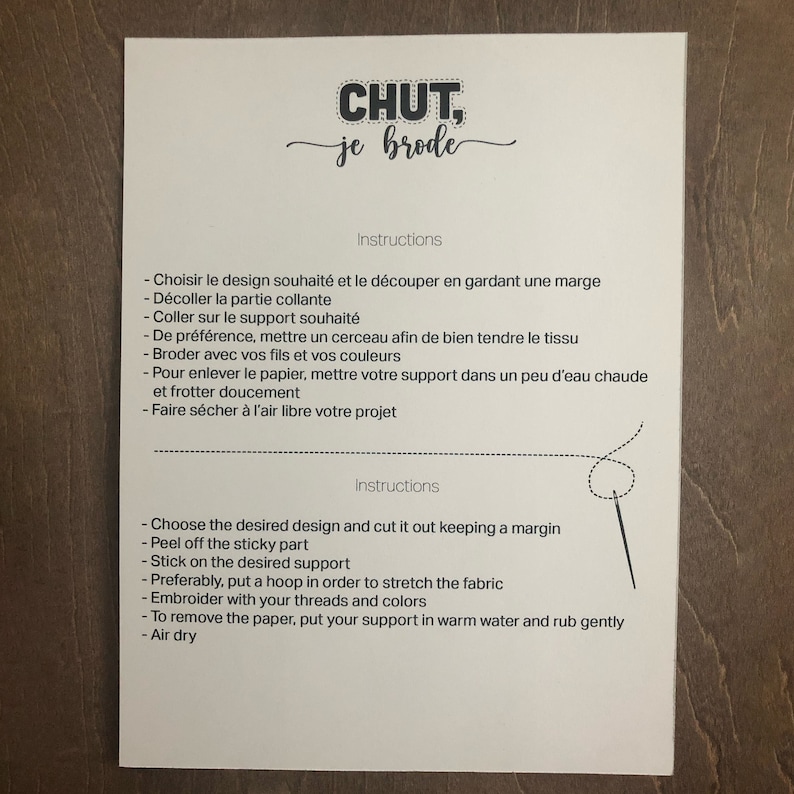 CHUT,
je brode
Instructions
- Choisir le design souhaité et le découper en gardant une marge
- Décoller la partie collante
- Coller sur le support souhaité
- De préférence, mettre un cerceau afin de bien tendre le tissu
- Broder avec vos fils et vos couleurs
- Pour enlever le papier, mettre votre support dans un peu d'eau chaude
et frotter doucement
- Faire sécher à l'air libre votre projet
Instructions
- Choose the desired design and cut it out keeping a margin
- Peel off the sticky part
- Stick on the desired support
- Preferably, put a hoop in order to stretch the fabric
- Embroider with your threads and colors
- To remove the paper, put your support in warm water and rub gently
- Air dry